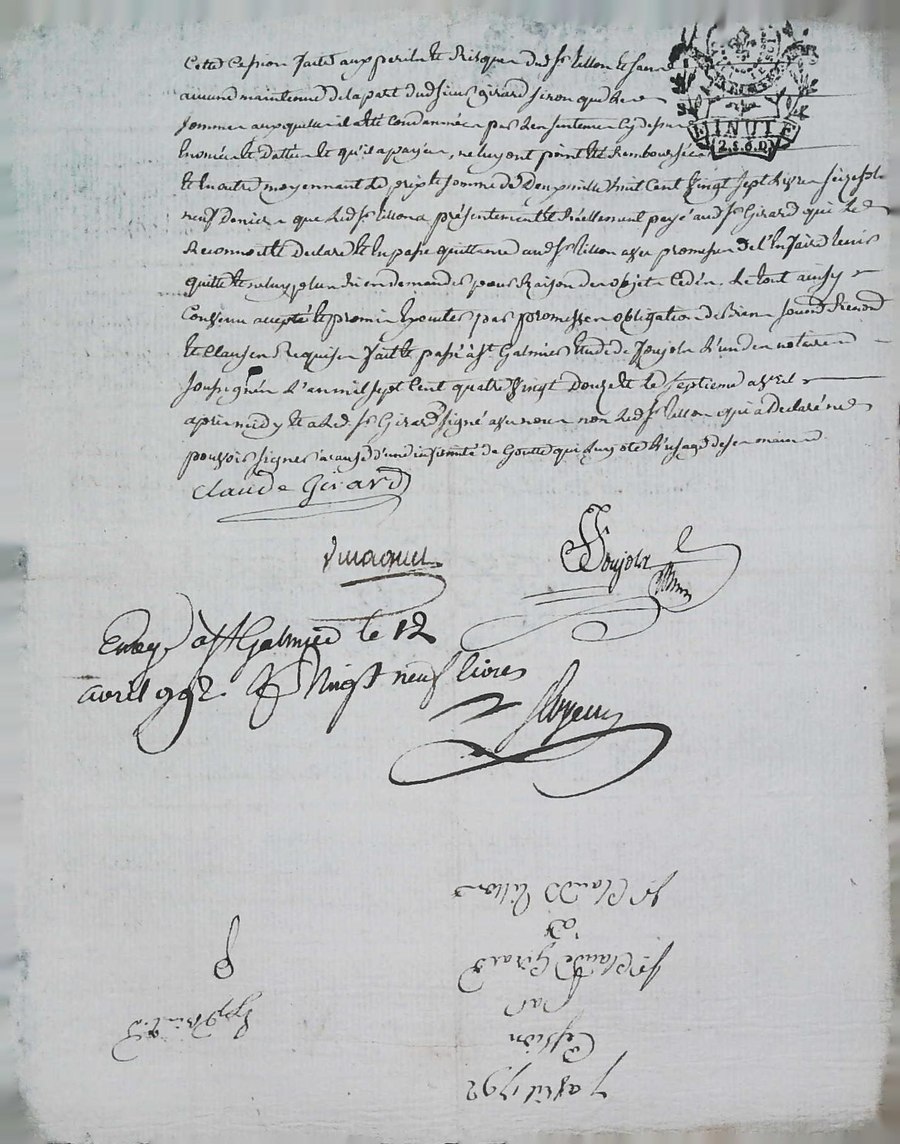 Cette Cession faite aux perils et Risques dud. Sr tillon et sans
aucune maintenue de la part dud. Sieur Girard sinon que les
sommes auxquelles il a été Condamné par les sentences cy dessus
Enoncées et Dattées et qu'il a payées, ne luy ont point été Remboursées
Et en outre moyennant le prix et somme de Deux mille huit Cent vingt sept Livres seize sols
neuf Deniers que led. Sr tillon a présentement et Réellement payé aud. Sr Girard qui le
Reconnoit et Declare et En passe quittance aud. Sr tillon avec promesse de l'En faire tenir
quitte et ne luy plus Rien demander pour Raison des objets Cedés. Le tout ainsy
Convenu accepté et promis Executer par promesses obligation de Biens soumis Renond
Et Clauses Requises fait et passé à St Galmier Etude de Poujola L'un des notaires
soussignés L'an mil sept Cent quatre vingt Douze et le septieme avril
après midy et a led. Sr Girard signé avec nous non led. Sr tillon qui a Declaré ne
pouvoir signer a cause d'une infirmité de Goutte qui Luy ote L'usage de ses mains
Claude Girard
Poujola
Enreg. à St Galmier le 12
avril 1792. Vingt neuf livres
MINUTE
2. S. 6. D.
7 avril 1792
Cession
Par
Sr Claude Girard
à
Sr Claude tillon